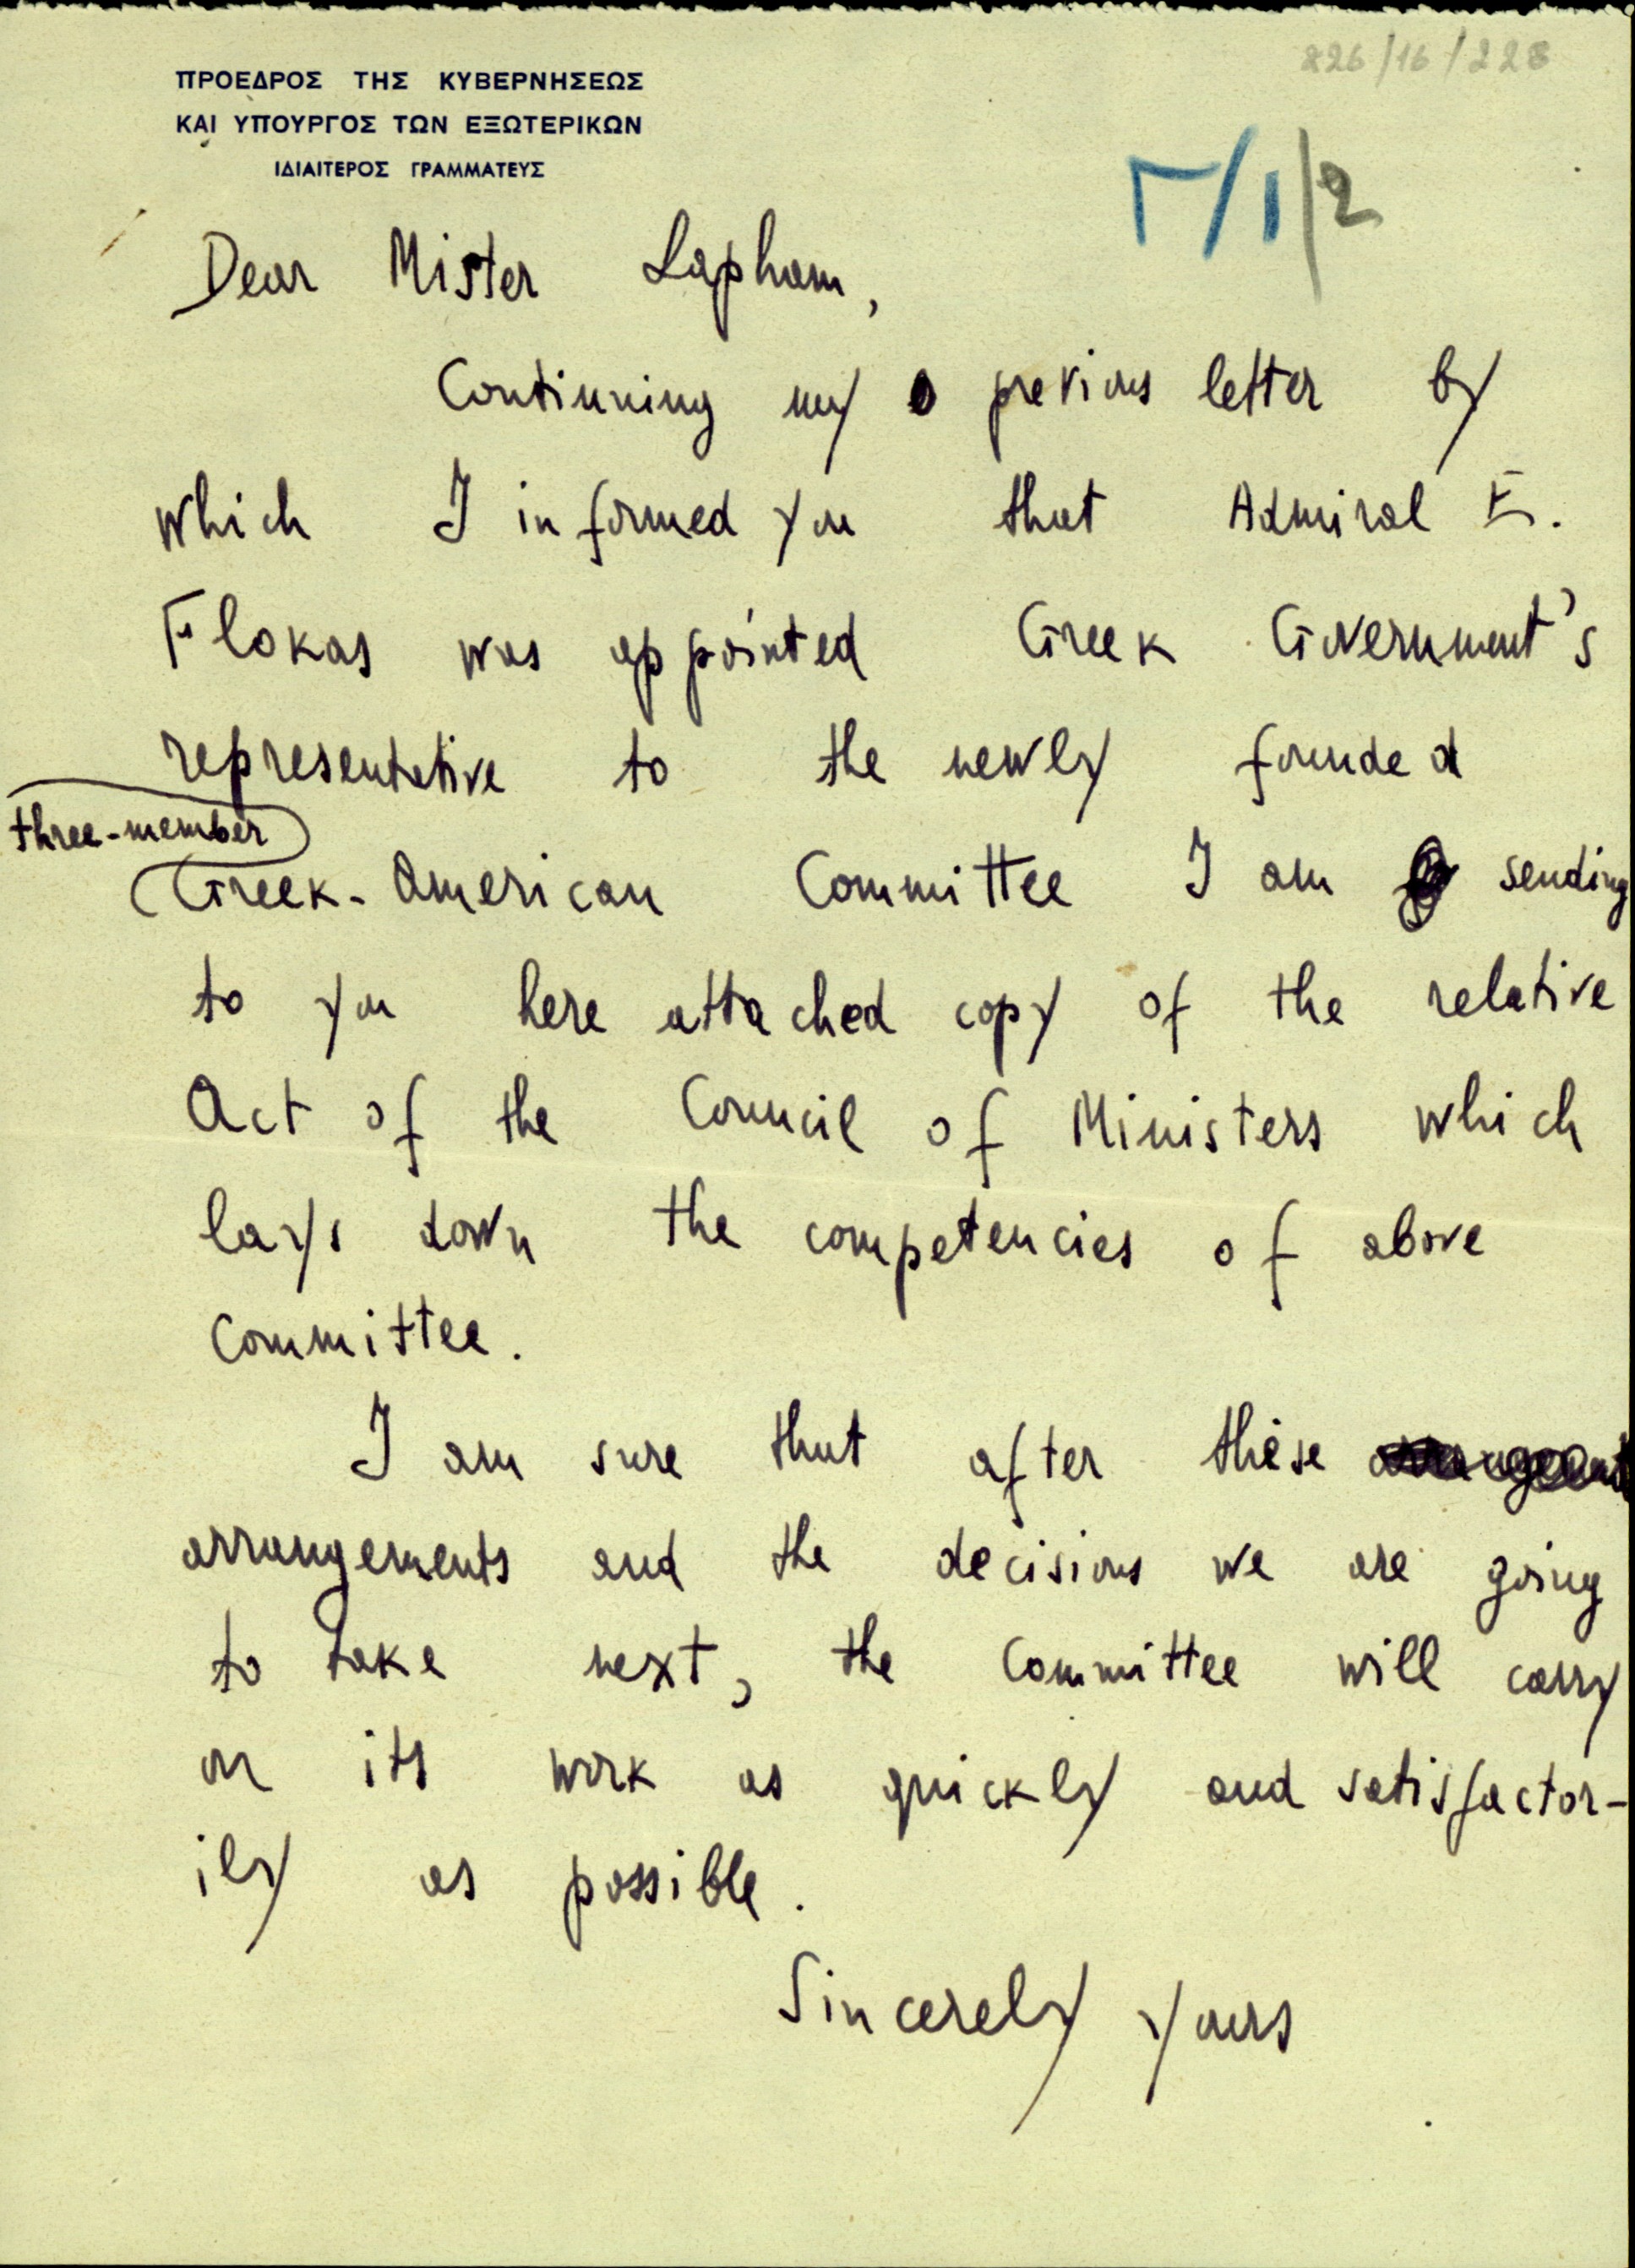 826/16/228
ΠΡΟΕΔΡΟΣ ΤΗΣ ΚΥΒΕΡΝΗΣΕΩΣ
ΚΑΙ ΥΠΟΥΡΓΟΣ ΤΩΝ ΕΞΩΤΕΡΙΚΩΝ
ΙΔΙΑΙΤΕΡΟΣ ΓΡΑΜΜΑΤΕΥΣ
Γ/1/2
Dear Mister Lapham,
Continuing my previous letter by
which I informed you that Admiral E.
Flokas was appointed Greek Government's
representative to the newly founded
three-member
Greek-American Committee I am sending
to you here attached copy of the relative
Act of the Council of Ministers which
lays down the competencies of above
Committee.
I am sure that after these
arrangements and the decisions we are going
to take next, the Committee will carry
on its work as quickly and satisfactor-
ily as possible.
Sincerely yours